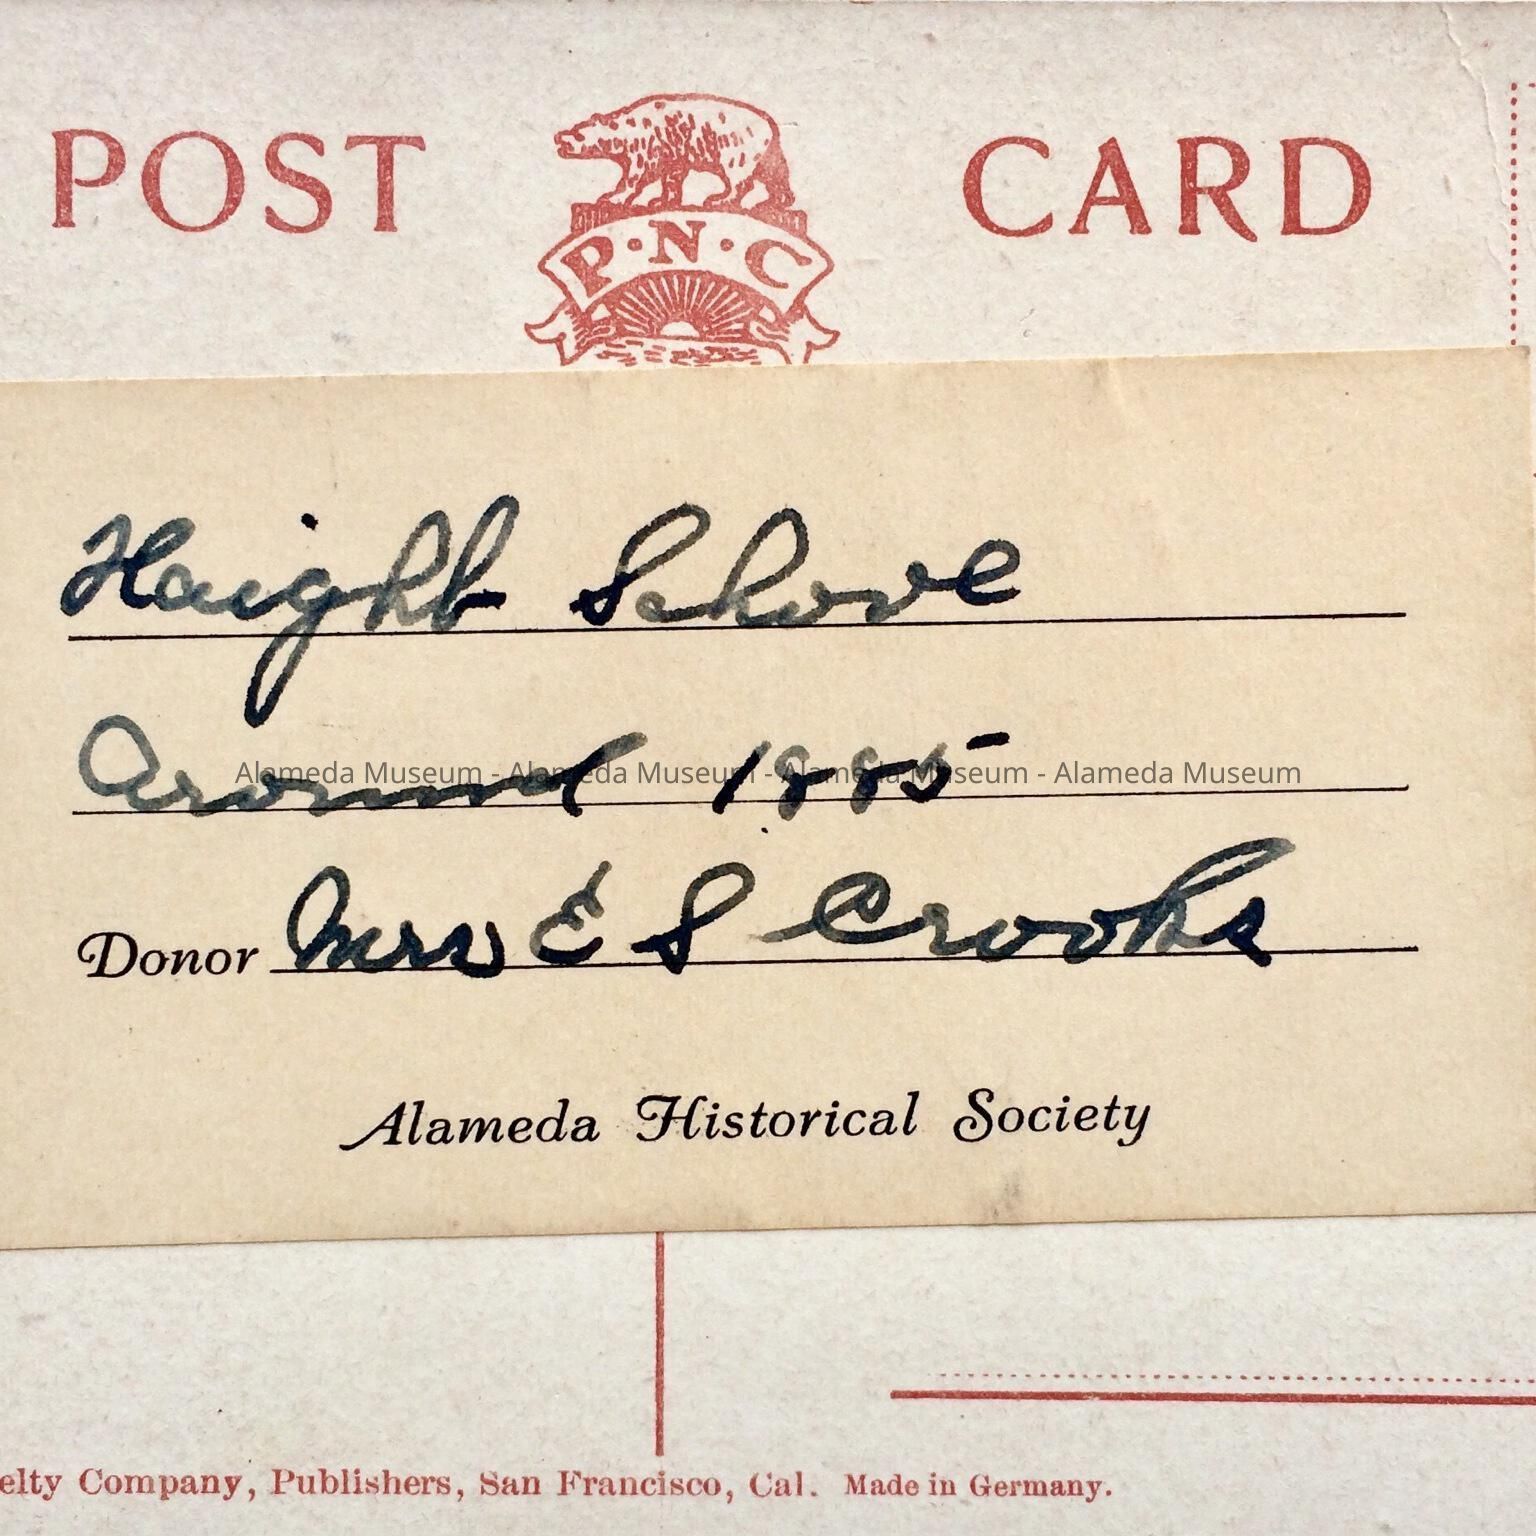 POST CARD
P·N·C
Haight School
Around 1885
Alameda Museum - Alameda Museum - Alameda Museum - Alameda Museum
Donor Mrs E S Crooks
Alameda Historical Society
elty Company, Publishers, San Francisco, Cal. Made in Germany.